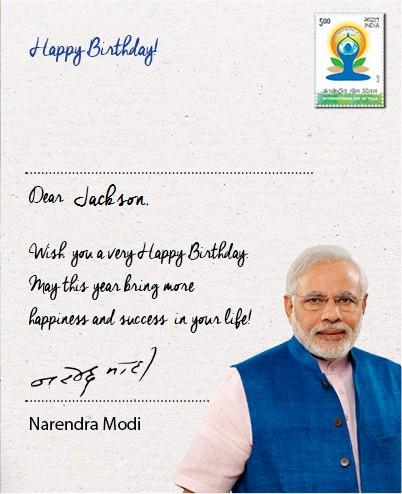 Happy Birthday!
5.00 भारत INDIA
अंतर्राष्ट्रीय योग दिवस
INTERNATIONAL DAY OF YOGA
Dear Jackson,
Wish you a very Happy Birthday.
May this year bring more
happiness and success in your life!
नरेन्द्र मोदी
Narendra Modi